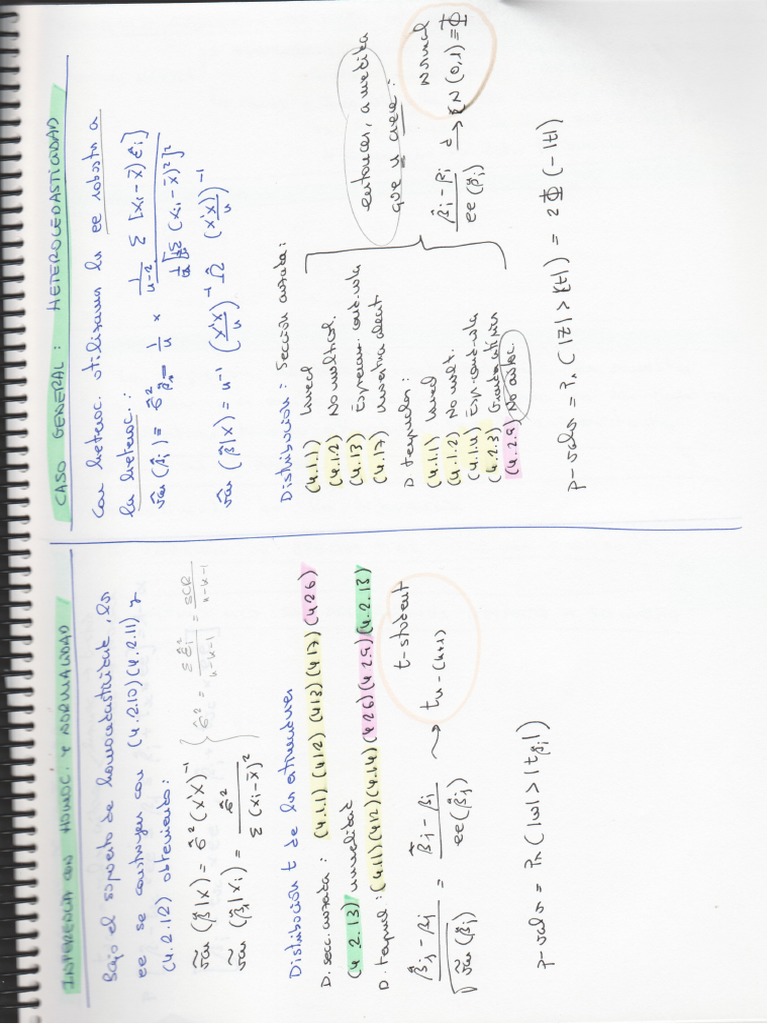 INFERENCIA CON HOMOC. Y NORMALIDAD
Bajo el supuesto de homocedasticidad, los
ee se construyen con (4.2.10) (4.2.11) y
(4.2.12) obteniendo:
ṽar (β̂|X) = σ̂² (X'X)⁻¹
ṽar (β̂₁|Xi) = σ̂² / Σ (xi - x̄)²
σ̂² = Σ ε̂i² / n-k-1 = SCR / n-k-1
Distribución t de los
D. secc. cruzada : (4.1.1) (4.1.2) (4.1.3) (4.1.7) (4.2.6)
(4.2.13) normalidad
D. tempral : (4.1.1) (4.1.2) (4.1.4) (4.2.6) (4.2.9) (4.2.13)
β̂j - βj / √ṽar (β̂j) = β̂j - βj / ee (β̂j) ~> tn-(k+1)
t-student
p-valor = Pr ( |w| > |tβ̂j| )
CASO GENERAL : HETEROCEDASTICIDAD
Con heteroc. utilizamos los ee robustos a
la heteroc.:
v̂ar (β̂i) = σ̂²β̂₁ = 1/n × 1/n-2 Σ [xi - x̄) ε̂i] / 1/n [Σ (xi - x̄)²]²
v̂ar (β̂|X) = n⁻¹ (X'X/n)⁻¹ Ω̂ (X'X/n)⁻¹
Distribución : Sección cruzada:
(4.1.1) lineal
(4.1.2) No multicol.
(4.1.3) Esperanz. cond. nula
(4.1.7) muestra aleat
D. temporales :
(4.1.1) lineal
(4.1.2) No mult.
(4.1.4) Esp. cond. nula
(4.2.3)
(4.2.9) No autoc.
entonces, a medida
que n crece :
β̂j - βj / ee (β̂j) d→ N (0,1) = Φ
Normal
p-valor = Pr ( |z| > |t| ) = 2 Φ (-|t|)